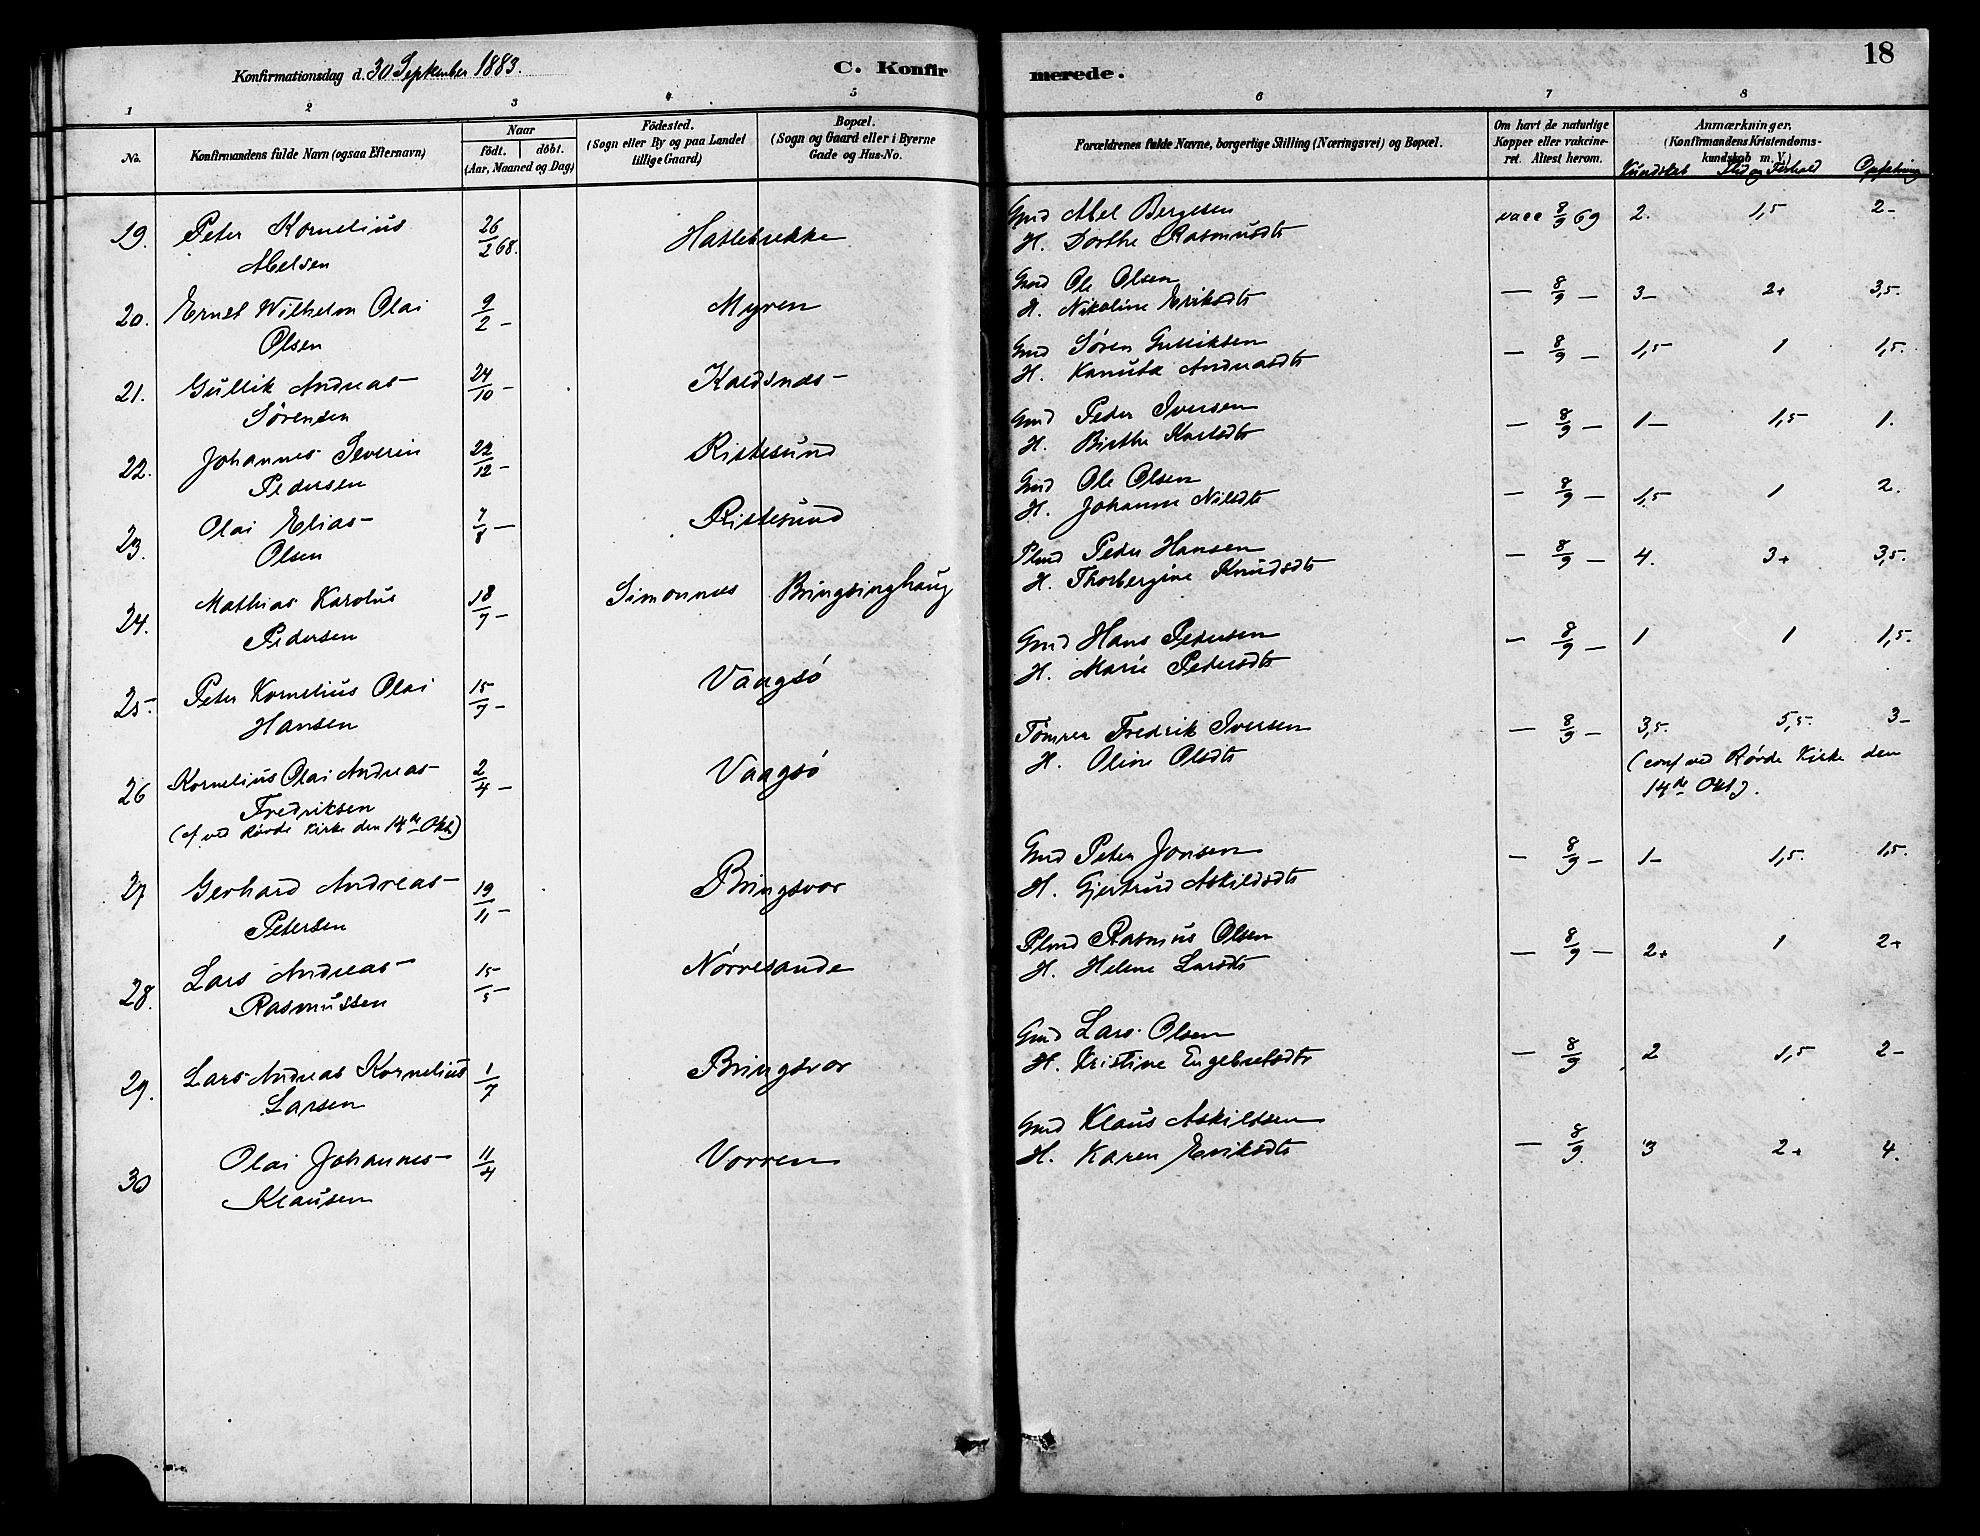 18
Konfirmationsdag d. 30 September 1883.
C. Konfirmerede.
1 2 3 4 5 6 7 8
No.
Konfirmandens fulde Navn (ogsaa Efternavn)
Naar
födt. döbt.
(Aar, Maaned og Dag)
Födested.
(Sogn eller By og paa Landet
tillige Gaard)
Bopæl.
(Sogn og Gaard eller i Byerne
Gade og Hus-No.
Forældrenes fulde Navne, borgerlige Stilling (Næringsvei) og Bopæl.
Om havt de naturlige
Kopper eller vakcine-
ret. Attest herom.
Anmærkninger.
(Konfirmandens Kristendoms-
kundskab m. V.)
Kundskab Flid og Forhold
19. Peter Kornelius
Abelsen
26/2 68.
Hatlebrekke
Gmd Abel Bergesen
H. Dorthe Rasmusdtr
vacc 8/9 69 2. 1,5 2-
20. Ernst Wilhelm Olai
Olsen
9/2 -
Myren
Gmd Ole Olsen
H. Nikoline Eriksdtr
— 8/9 — 3- 2+ 3,5.
21. Gullik Andreas
Sørensen
24/10 -
Koldsnes
Gmd Søren Gulliksen
H. Kanutæ Andreasdtr
— 8/9 — 1,5 1 1,5.
22. Johannes Severin
Pedersen
22/12 -
Ristesund
Gmd Peder Iversen
H. Birthe Karlsdtr
— 8/9 — 1- 1,5 1.
23. Olai Elias
Olsen
7/8 —
Ristesund
Gmd Ole Olsen
H. Johanne Nilsdtr
— 8/9 — 1,5 1 2.
24. Mathias Karolus
Pedersen
18/7 -
Simonnes Bringsinghaug
Plmd Peder Hansen
H. Thorbergine Knudsdtr
— 8/9 — 4. 3+ 3,5.
25. Peter Kornelius Olai
Hansen
15/7 -
Vaagsø
Gmd Hans Pedersen
H. Marie Pedersdtr
— 8/9 — 1 1 1,5.
26 Kornelius Olai Andreas
Fredriksen
(cf ved Rovde Kirke den 14de Okt)
2/4 -
Vaagsø
Tømrer Fredrik Iversen
H. Oline Olsdtr
— 8/9 — 3,5. 5,5. 3-
(conf ved Rovde Kirke den
14de Okt).
27 Gerhard Andreas
Petersen
19/11 -
Bringsvor
Gmd Peter Jonsen
H. Gjertrud Askildsdtr
— 8/9 — 1- 1,5. 1,5.
28. Lars Andreas
Rasmussen
15/5 -
Nørresande
Plmd Rasmus Olsen
H. Helene Larsdtr
— 8/9 — 2+ 1 2+
29. Lars Andreas Kornelius
Larsen
1/7
Bringsvor
Gmd Lars Olsen
H. Kristine Engebretsdtr
— 8/9 2 1,5 2-
30 Olai Johannes
Klausen
11/4
Vorren
Gmd Klaus Askildsen
H. Karen Eriksdtr
— 8/9. 3 2+ 4.